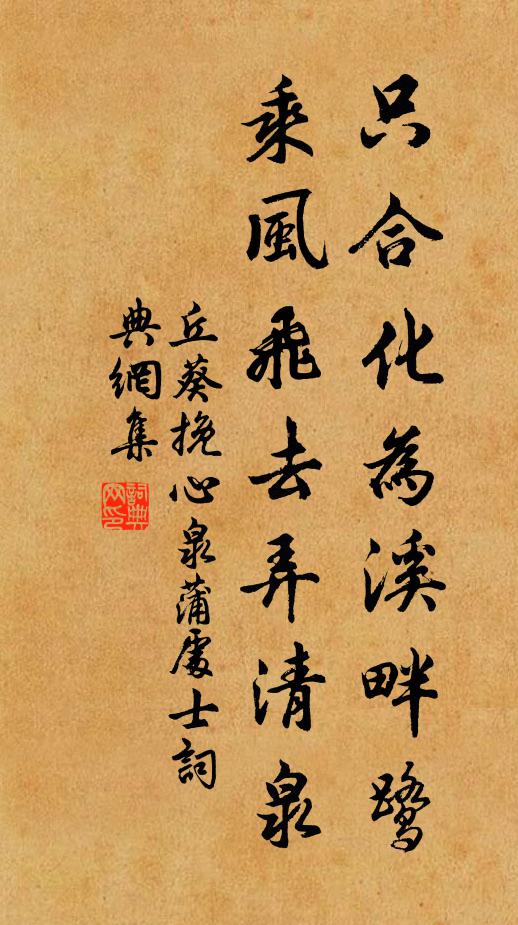 只合化為溪畔鷺
乘風飛去弄清泉
丘葵挽心泉蒲處士詞
典網集
詞典網印